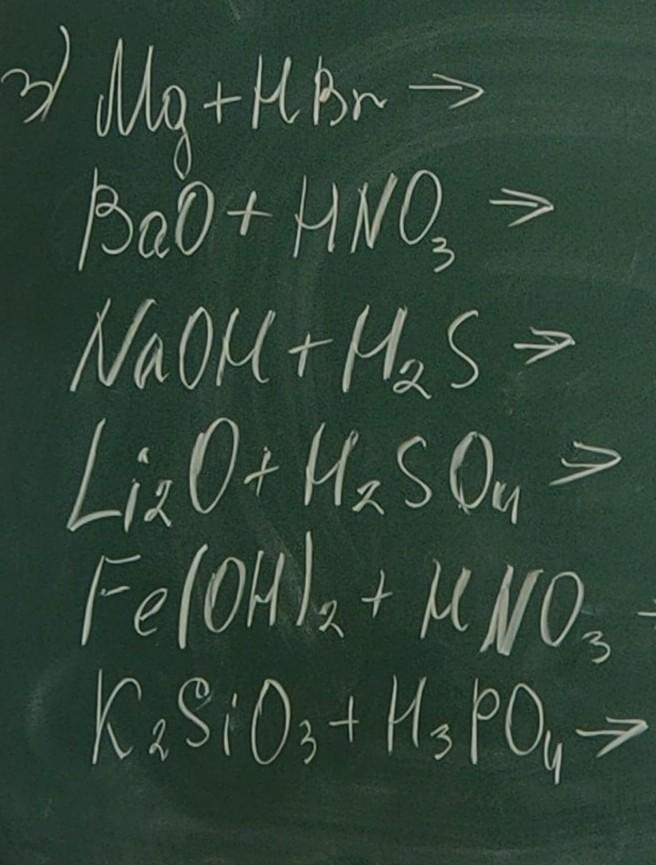 3) Mg + HBr →
BaO + HNO₃ →
NaOH + H₂S →
Li₂O + H₂SO₄ →
Fe(OH)₂ + HNO₃ →
K₂SiO₃ + H₃PO₄ →